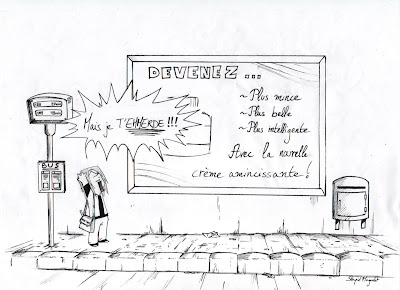 DEVENEZ...
~Plus mince
~Plus belle
~Plus intelligente
Avec la nouvelle
crème amincissante!
Mais je T'EMMERDE!!!
BUS